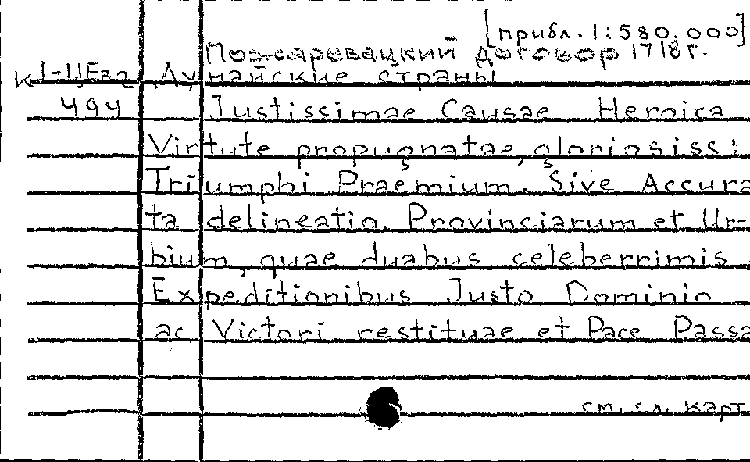 [прибл. 1:580.000]
Пожаревацкий договор 1718г.
К 1-ЦЕ Дунайские страны
494 Justissimae Causae Heroica
Virtute propugnatae, gloriosiss:
Triumphi Praemium. Sive Accura
ta delineatio Provinciarum et Ur-
bium, quae duabus celeberrimis
Expeditionibus Justo Dominio
ac Victori restitutae et Pace Passa
см. сл. карт